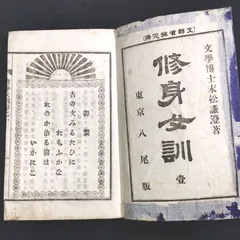 文部省檢定濟
文學博士末松謙澄著
修身女訓
壹
東京八尾版
御製
古の文みるたひに
おもふかな
おのか治る國は
いかにと